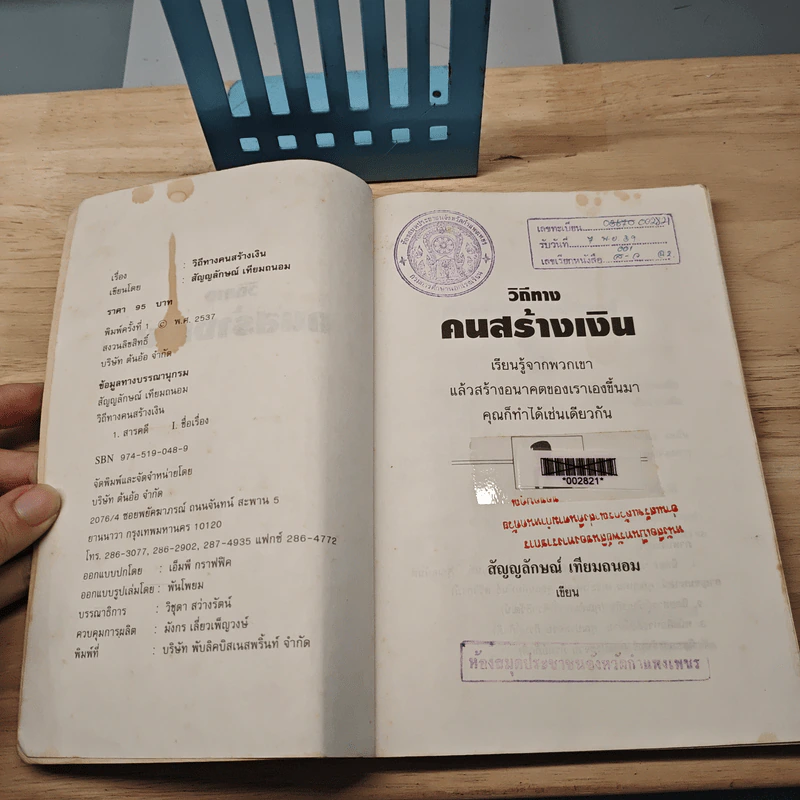 เรื่อง : วิถีทางคนสร้างเงิน
เขียนโดย : สัญญลักษณ์ เทียมถนอม
ราคา 95 บาท
พิมพ์ครั้งที่ 1 © พ.ศ. 2537
สงวนลิขสิทธิ์
บริษัท ต้นอ้อ จำกัด
ข้อมูลทางบรรณานุกรม
สัญญลักษณ์ เทียมถนอม
วิถีทางคนสร้างเงิน
1. สารคดี I. ชื่อเรื่อง
SBN 974-519-048-9
จัดพิมพ์และจัดจำหน่ายโดย
บริษัท ต้นอ้อ จำกัด
2076/4 ซอยพยัคฆาภรณ์ ถนนจันทน์ สะพาน 5
ยานนาวา กรุงเทพมหานคร 10120
โทร. 286-3077, 286-2902, 287-4935 แฟกซ์ 286-4772
ออกแบบปกโดย : เอ็มพี กราฟฟิค
ออกแบบรูปเล่มโดย : พันโพยม
บรรณาธิการ : วิชุดา สว่างรัตน์
ควบคุมการผลิต : มังกร เลี่ยวเพ็ญวงษ์
พิมพ์ที่ : บริษัท พับลิคบิสเนสพริ้นท์ จำกัด
ห้องสมุดประชาชนจังหวัดกำแพงเพชร
เลขทะเบียน 002821
รับวันที่ 7 พ.ย. 39
เลขเรียกหนังสือ
วิถีทาง
คนสร้างเงิน
เรียนรู้จากพวกเขา
แล้วสร้างอนาคตของเราเองขึ้นมา
คุณก็ทำได้เช่นเดียวกัน
*002821*
หนังสือเป็นทรัพย์สินของทางราชการ
สัญญลักษณ์ เทียมถนอม
เขียน
ห้องสมุดประชาชนจังหวัดกำแพงเพชร